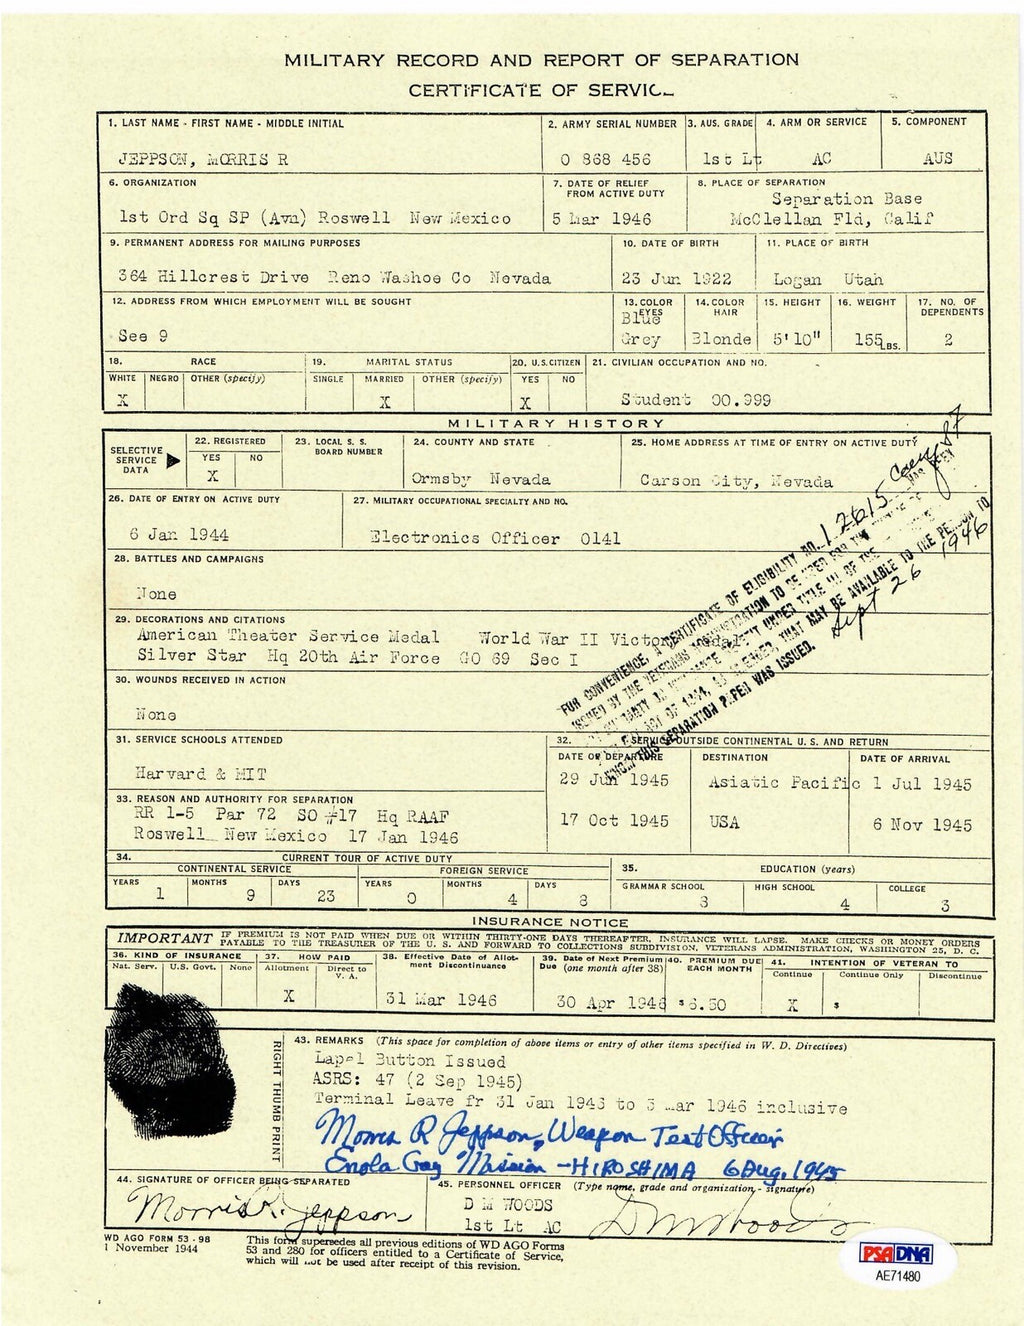 MILITARY RECORD AND REPORT OF SEPARATION
CERTIFICATE OF SERVIC
1. LAST NAME - FIRST NAME - MIDDLE INITIAL
JEPPSON, MORRIS R
2. ARMY SERIAL NUMBER
O 868 456
3. AUS. GRADE
1st Lt
4. ARM OR SERVICE
AC
5. COMPONENT
AUS
6. ORGANIZATION
1st Ord Sq SP (Avn) Roswell New Mexico
7. DATE OF RELIEF FROM ACTIVE DUTY
5 Mar 1946
8. PLACE OF SEPARATION
Separation Base
McClellan Fld, Calif
9. PERMANENT ADDRESS FOR MAILING PURPOSES
364 Hillcrest Drive Reno Washoe Co Nevada
10. DATE OF BIRTH
23 Jun 1922
11. PLACE OF BIRTH
Logan Utah
12. ADDRESS FROM WHICH EMPLOYMENT WILL BE SOUGHT
See 9
13. COLOR EYES
Blue
Grey
14. COLOR HAIR
Blonde
15. HEIGHT
5'10"
16. WEIGHT
155 LBS.
17. NO. OF DEPENDENTS
2
18. RACE
WHITE NEGRO OTHER (specify)
X
19. MARITAL STATUS
SINGLE MARRIED OTHER (specify)
X
20. U.S. CITIZEN
YES NO
X
21. CIVILIAN OCCUPATION AND NO.
Student 00.999
MILITARY HISTORY
SELECTIVE SERVICE DATA
22. REGISTERED
YES NO
X
23. LOCAL S. S. BOARD NUMBER
24. COUNTY AND STATE
Ormsby Nevada
25. HOME ADDRESS AT TIME OF ENTRY ON ACTIVE DUTY
Carson City, Nevada
26. DATE OF ENTRY ON ACTIVE DUTY
6 Jan 1944
27. MILITARY OCCUPATIONAL SPECIALTY AND NO.
Electronics Officer 0141
28. BATTLES AND CAMPAIGNS
None
29. DECORATIONS AND CITATIONS
American Theater Service Medal World War II Victory Medal
Silver Star Hq 20th Air Force GO 69 Sec I
FOR CONVENIENCE, A CERTIFICATE OF ELIGIBILITY NO. 12615
ISSUED BY THE VETERANS ADMINISTRATION TO BE USED FOR THE
TITLE III OF THE
ACT OF 1944, AS AMENDED, THAT MAY BE AVAILABLE TO THE PERSON TO
WHOM THIS SEPARATION PAPER WAS ISSUED.
Sept 26 1946
30. WOUNDS RECEIVED IN ACTION
None
31. SERVICE SCHOOLS ATTENDED
Harvard & MIT
32. SERVICE OUTSIDE CONTINENTAL U. S. AND RETURN
DATE OF DEPARTURE DESTINATION DATE OF ARRIVAL
29 Jun 1945 Asiatic Pacific 1 Jul 1945
17 Oct 1945 USA 6 Nov 1945
33. REASON AND AUTHORITY FOR SEPARATION
RR 1-5 Par 72 SO #17 Hq RAAF
Roswell New Mexico 17 Jan 1946
34. CURRENT TOUR OF ACTIVE DUTY
CONTINENTAL SERVICE FOREIGN SERVICE
YEARS MONTHS DAYS YEARS MONTHS DAYS
1 9 23 0 4 8
35. EDUCATION (years)
GRAMMAR SCHOOL HIGH SCHOOL COLLEGE
8 4 3
INSURANCE NOTICE
IMPORTANT IF PREMIUM IS NOT PAID WHEN DUE OR WITHIN THIRTY-ONE DAYS THEREAFTER, INSURANCE WILL LAPSE. MAKE CHECKS OR MONEY ORDERS
PAYABLE TO THE TREASURER OF THE U. S. AND FORWARD TO COLLECTIONS SUBDIVISION, VETERANS ADMINISTRATION, WASHINGTON 25, D. C.
36. KIND OF INSURANCE
Nat. Serv. U.S. Govt. None
37. HOW PAID
Allotment Direct to V. A.
X
38. Effective Date of Allotment Discontinuance
31 Mar 1946
39. Date of Next Premium Due (one month after 38)
30 Apr 1946
40. PREMIUM DUE EACH MONTH
$6.50
41. INTENTION OF VETERAN TO
Continue Continue Only Discontinue
X $
RIGHT THUMB PRINT
43. REMARKS (This space for completion of above items or entry of other items specified in W. D. Directives)
Lapel Button Issued
ASRS: 47 (2 Sep 1945)
Terminal Leave fr 31 Jan 1946 to 5 Mar 1946 inclusive
Morris R Jeppson, Weapon Test Officer
Enola Gay Mission - HIROSHIMA 6 Aug, 1945
44. SIGNATURE OF OFFICER BEING SEPARATED
Morris R. Jeppson
45. PERSONNEL OFFICER (Type name, grade and organization - signature)
D M WOODS
1st Lt AC
D M Woods
WD AGO FORM 53 - 98
1 November 1944
This form supersedes all previous editions of WD AGO Forms
53 and 280 for officers entitled to a Certificate of Service,
which will not be used after receipt of this revision.
PSA DNA
AE71480